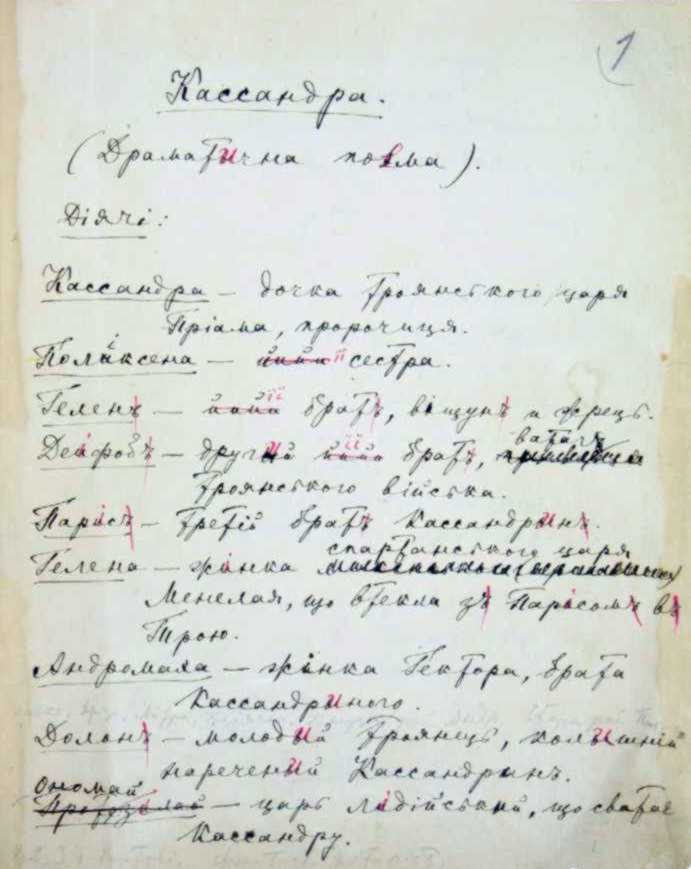 1
Кассандра.
(Драматична поема).
Діячі:
Кассандра – дочка троянського царя
Пріама, пророчиця.
Поліксена – її сестра.
Гелен – її брат, віщун и жрець.
Деіфоб – другий її брат, ватаг
троянського війська.
Паріс – третій брат Кассандрин.
спартанського царя
Гелена – жінка
Менелая, що втекла з Парісом в
Трою.
Андромаха – жінка Гектора, брата
Кассандриного.
Долон – молодий троянець, колишній
наречений Кассандрин.
Ономай
– царь лідійський, що сватає
Кассандру.